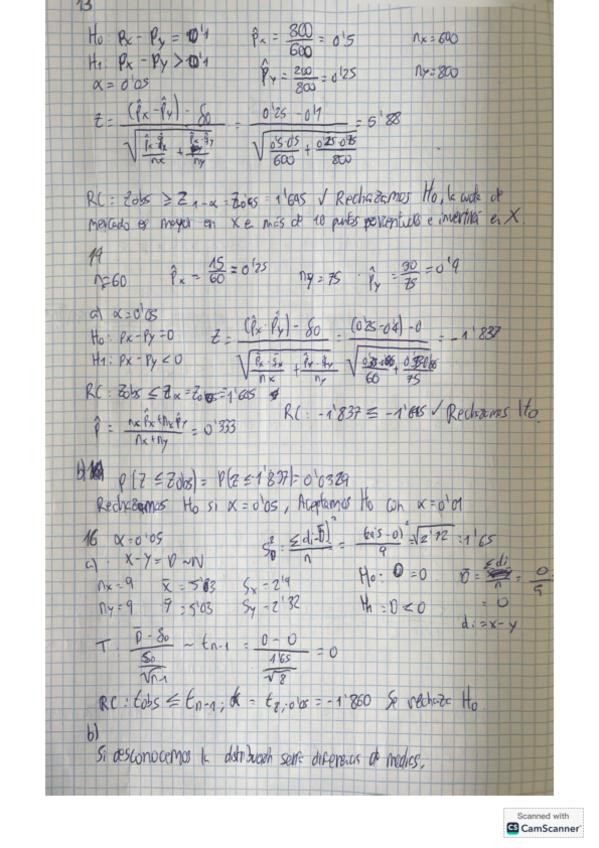 13
H₀: Px - Py = 0'1   p̂x = 800/600 = 0'5   nx = 600
H₁: Px - Py > 0'1   p̂y = 200/800 = 0'25   ny = 800
α = 0'05
Z = (p̂x - p̂y) - δ0 / √(p̂x·q̂x/nx + p̂y·q̂y/ny) = 0'25 - 0'1 / √(0'5·0'5/600 + 0'25·0'75/800) = 5'88
RC: Zobs ≥ Z1-α = Z0'95 = 1'645 ✓ Rechazamos H₀, la cuota de
mercado es mayor en X e más de 10 puntos porcentuales e invertirá en X
14
n=60   p̂x = 15/60 = 0'25   ny = 75 · p̂y = 30/75 = 0'4
a) α = 0'05
H₀: Px - Py = 0   Z = (p̂x - p̂y) - δ0 / √(p̂x·q̂x/nx + p̂y·q̂y/ny) = (0'25 - 0'4) - 0 / √( /60 + /75) = -1'837
H₁: Px - Py < 0
RC: Zobs ≤ Zα = -1'645
RC: -1'837 ≤ -1'645 ✓ Rechazamos H₀.
p̂ = nx p̂x + ny p̂y / nx + ny = 0'333
b)
P(Z ≤ Zobs) = P(Z ≤ 1'837) = 0'0329
Rechazamos H₀ si α = 0'05, Aceptamos H₀ con α = 0'01
16 α = 0'05   S²D = Σ(di - D̄)²/n = ( - 0)²/9 = √2'72 = 1'65
a) · X - Y = D ~ N
nx = 9   x̄ = 5'03   Sx = 2'4   H₀: D = 0   D̄ = Σdi/n = 0/9
ny = 9   ȳ = 5'03   Sy = 2'32   H₁ = D < 0   = 0
di = x - y
T = D̄ - δ0 / SD/√n-1 ~ tn-1 = 0 - 0 / 1'65/√8 = 0
RC: tobs ≤ tn-1; α = t8; 0'05 = -1'860 Se rechaza H₀
b)
Si desconocemos la distribución sería diferencia de medias.
Scanned with
CS CamScanner